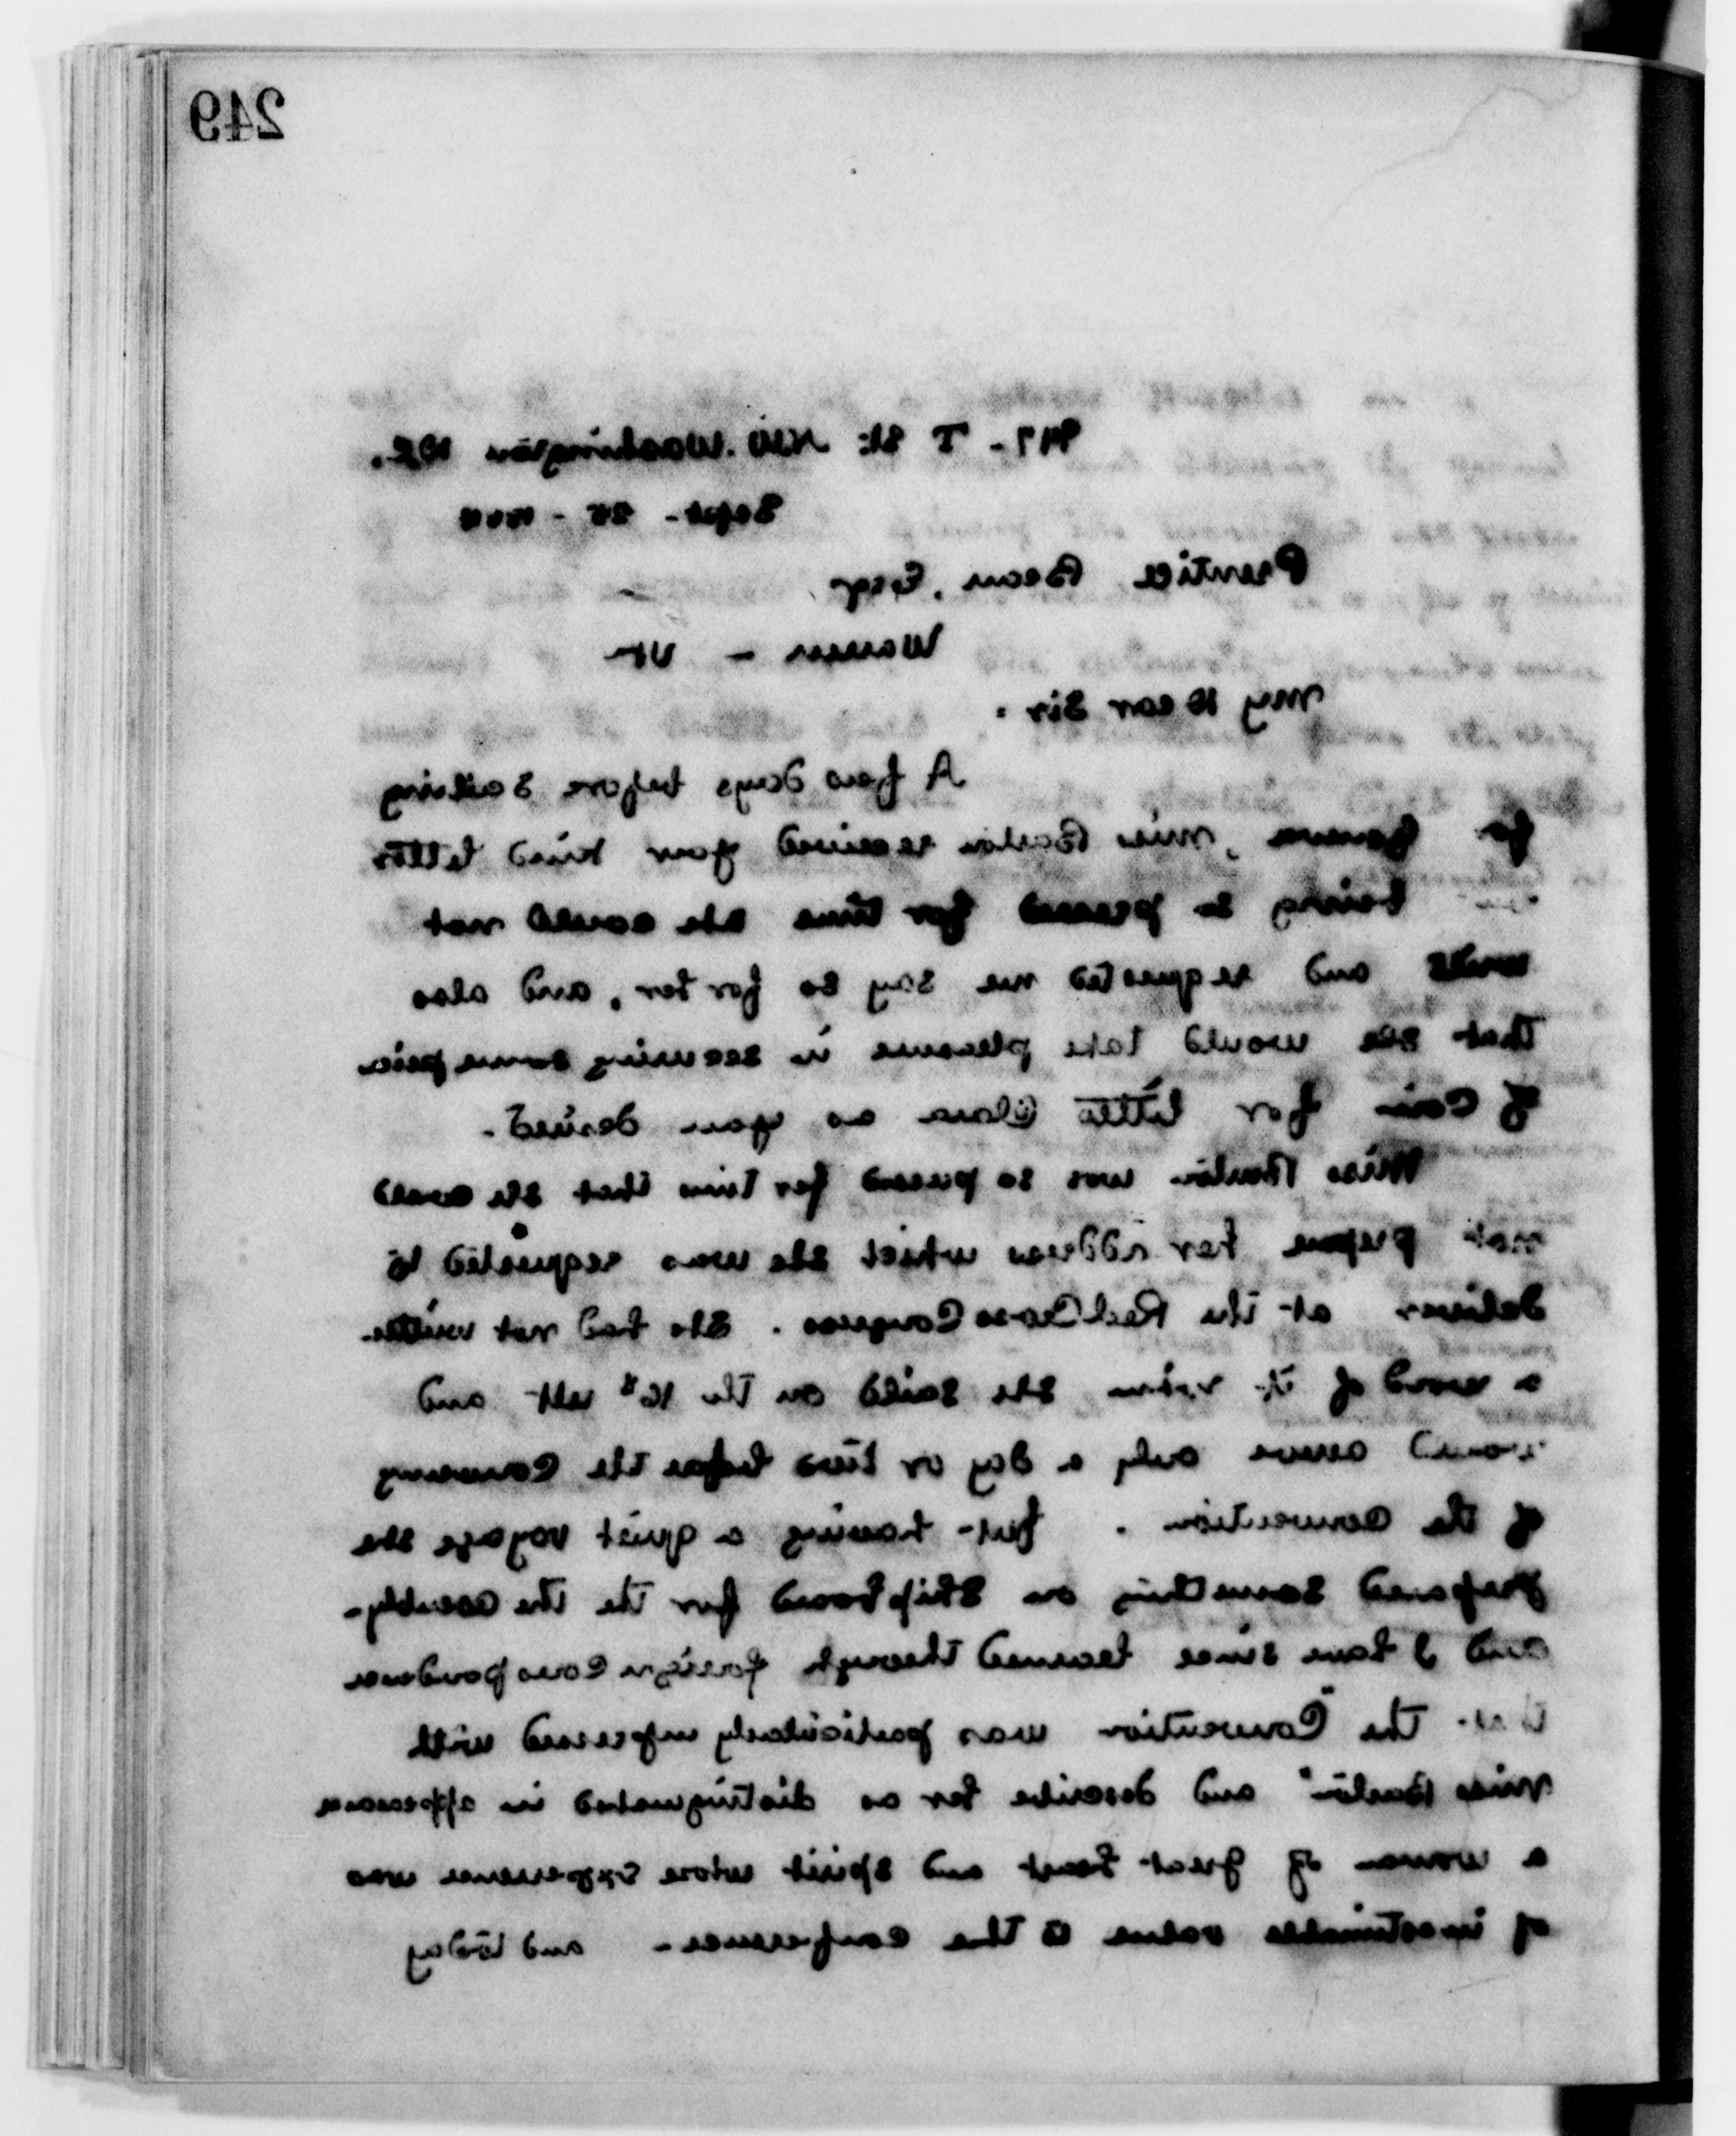 249
947 - T St. N.W. Washington DC.
Sept - 25 -
Prentice Bean, Esqr
Warren - Vt
My Dear Sir.
A few days before Sailing
for Geneva, Miss Barton received your kind letter
being so pressed for time she could not
write and requested me say so for her, and also
that she would take pleasure in securing some
of Coin for little Clara as you desired.
Miss Barton was so pressed for time that she could
not prepare her address which she was requested to
deliver at the Red Cross Congress. She had not written
a word of it when she sailed on the 16th ult and
would arrive only a day or two before the Convening
of the Convention. but having a quiet voyage she
prepared something on Shipboard for the the assembly-
and I have since learned through foreign Correspondence
that the "Convention was particularly impressed with
Miss Barton" and describe her as distinguished in appearance
a woman of great heart and spirit whose experience was
of inestimable value to the conference - and today